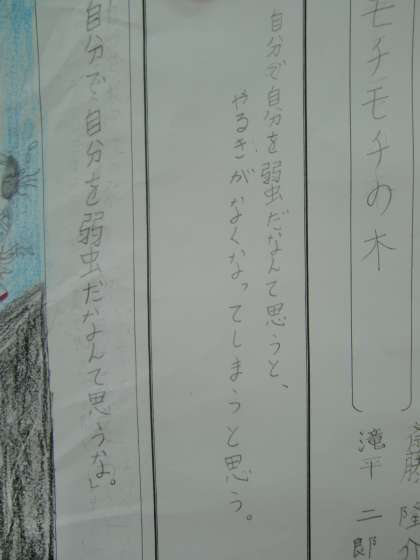 モチモチの木
斎藤 隆介
滝平 二郎
自分で自分を弱虫だなんて思うと、
やるきがなくなってしまうと思う。
自分で自分を弱虫だなんて思うな。」